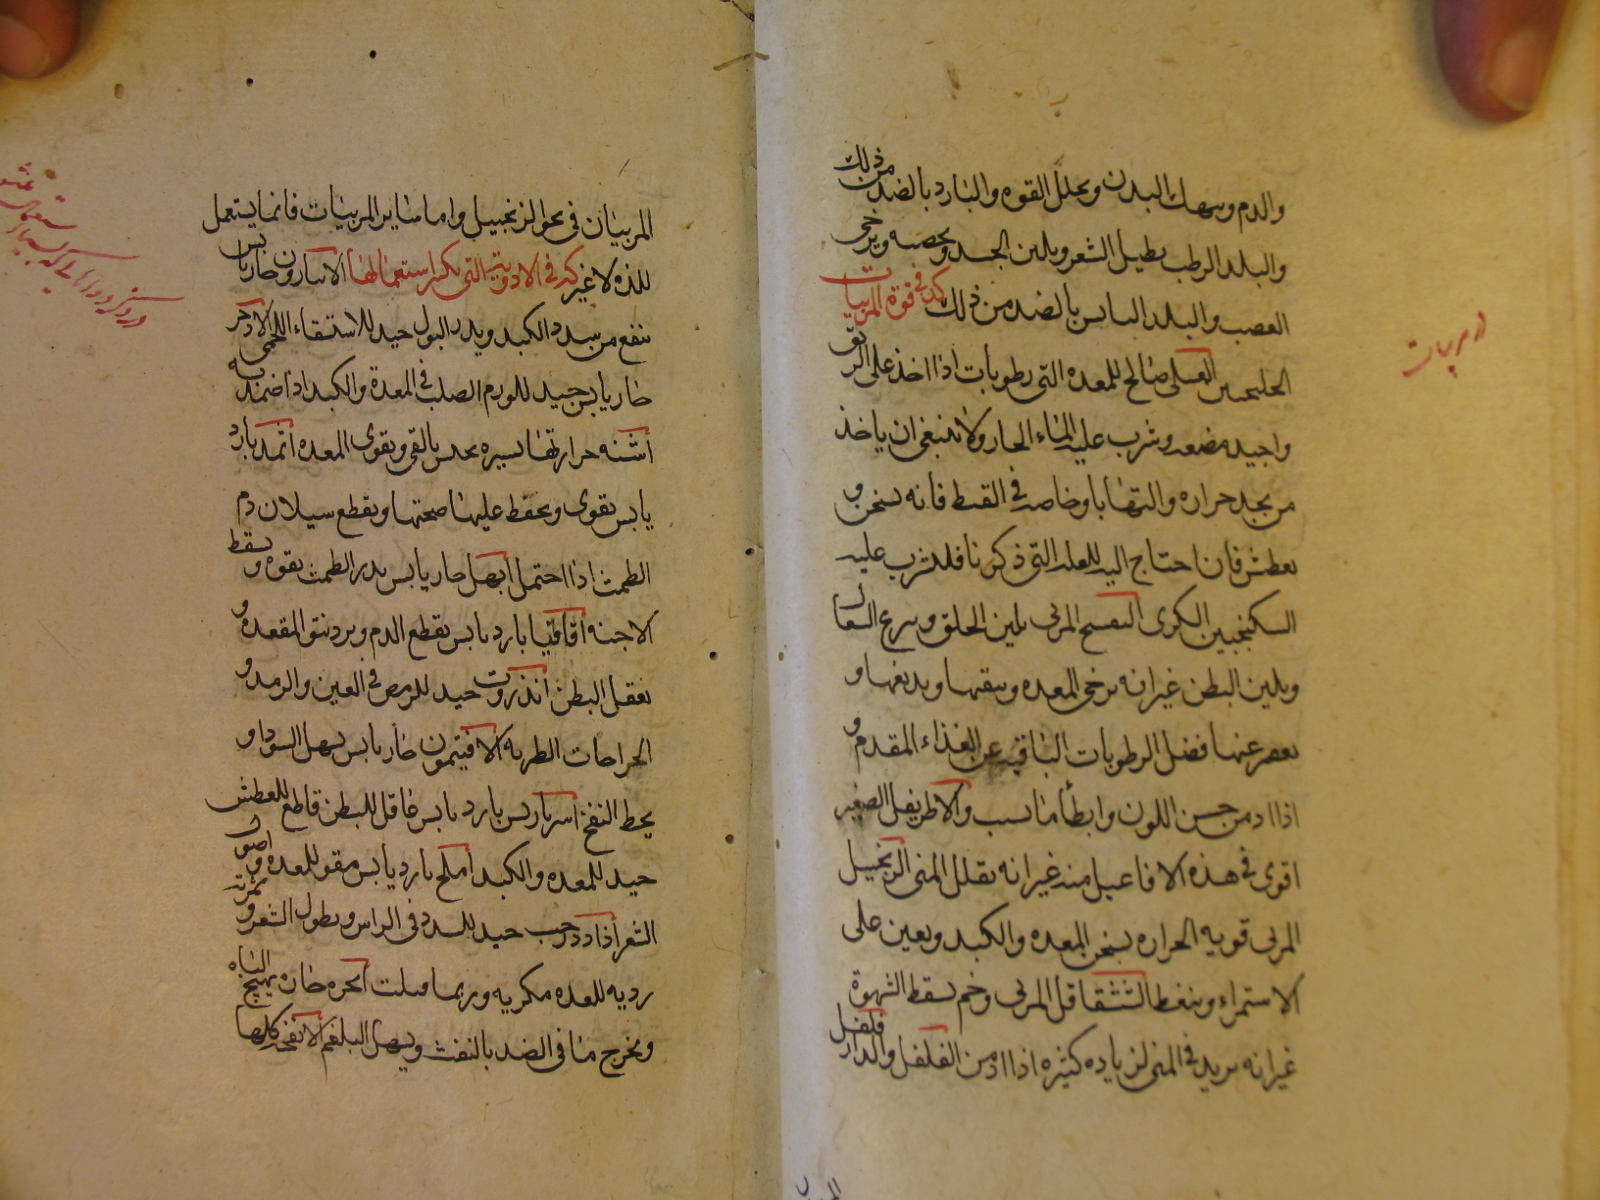 والدم وينهك البدن ويحلل القوه والبارد بالضد من ذلك
والبلد الرطب يطيل الشعر ويلين الجلد ويخصبه ويرخى
العصب والبلد اليابس بالضد من ذلك كد فى قوة المربيات
العسلى صالح للمعده التى رطوبات اذا اخذ على الريق
واجيد مضغه وشرب عليه الماء الحار ولا ينبغى ان ياخذ
من يجد حراره والتهابا وخاصه فى القيظ فانه يسخن و
يعطش فان احتاج اليه للعله التى ذكرنا فليشرب عليه
السكنجبين السكرى البنفسج المربى يلين الحلق وينزع السعال
ويلين البطن غير انه يرخى المعده
يعصر عنها فضل الرطوبات الباقيه عن الغذاء المقدم و
اذا ادمن حسن اللون وابطأ بالشيب والاطريفل الصغير
اقوى فى هذه الافاعيل منه غير انه يقلل المنى الزنجبيل
المربى قويه الحراره يسخن المعده والكبد ويعين على
الاستمراء وينعظ الشقاقل المربى وخم يسقط الشهوة
غير انه يزيد فى المنى لزياده كثيره اذا ادمن الفلفل والدارفلفل
در مربيات
المربيان فى نحو الزنجبيل واما ساير المربيات فانما يستعمل
للذه لا غير كد فى الادوية التى يكثر استعمالها الانبارون حار يابس
ينفع من سدد الكبد ويدر البول جيد للاستسقاء اللحمى الاذخر
حار يابس جيد للورم الصلب فى المعدة والكبد اذا ضمد به
اشنه حرارتها يسيره يحبس القى ويقوى المعده اثمد بارد
يابس يقوى ويحفظ عليها صحتها ويقطع سيلان دم
الطمث اذا احتمل ابهل حار يابس يدر الطمث بقوه ويسقط
الاجنه اقاقيا بارد يابس يقطع الدم ويرد نتو المقعده و
يعقل البطن انذروت جيد للرمص فى العين والرمد و
الجراحات الطريه الافتيمون حار يابس يسهل السودا و
يحط النفخ اميرباريس بارد يابس عاقل للبطن قاطع للعطش
جيد للمعده والكبد املج بارد يابس مقو للمعده واصول
الشعر اذادرخت جيد للسدد فى الراس ويطول الشعر وثمرته
رديه للمعده مكربه وربما قتلت انجره حاره يهيج الباه
ويخرج ما فى الصدر بالنفث ويسهل البلغم الانفحه كلها